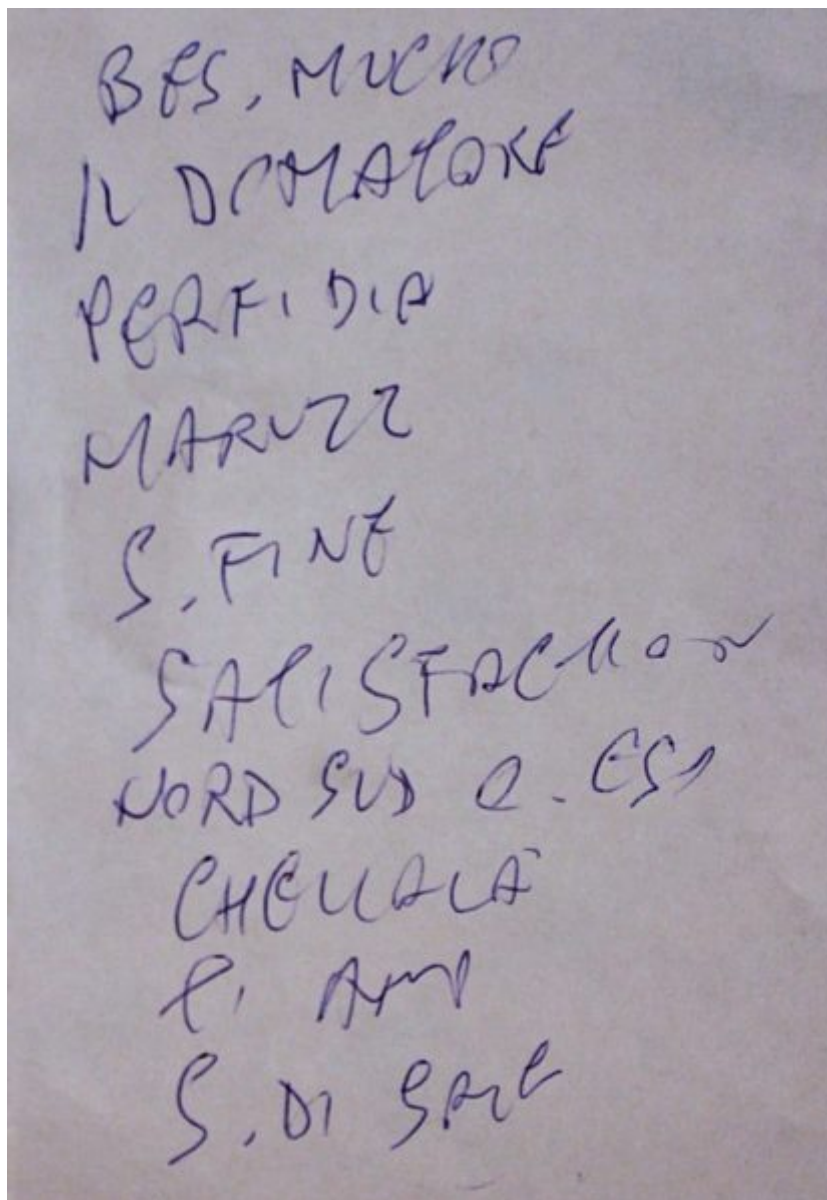 BES. MUCHO
IL DOMATORE
PERFIDIA
MARUZZ
S. FINE
SATISFACTION
NORD SUD O. EST
CHELLALÀ
TI AMO
S. DI SALE